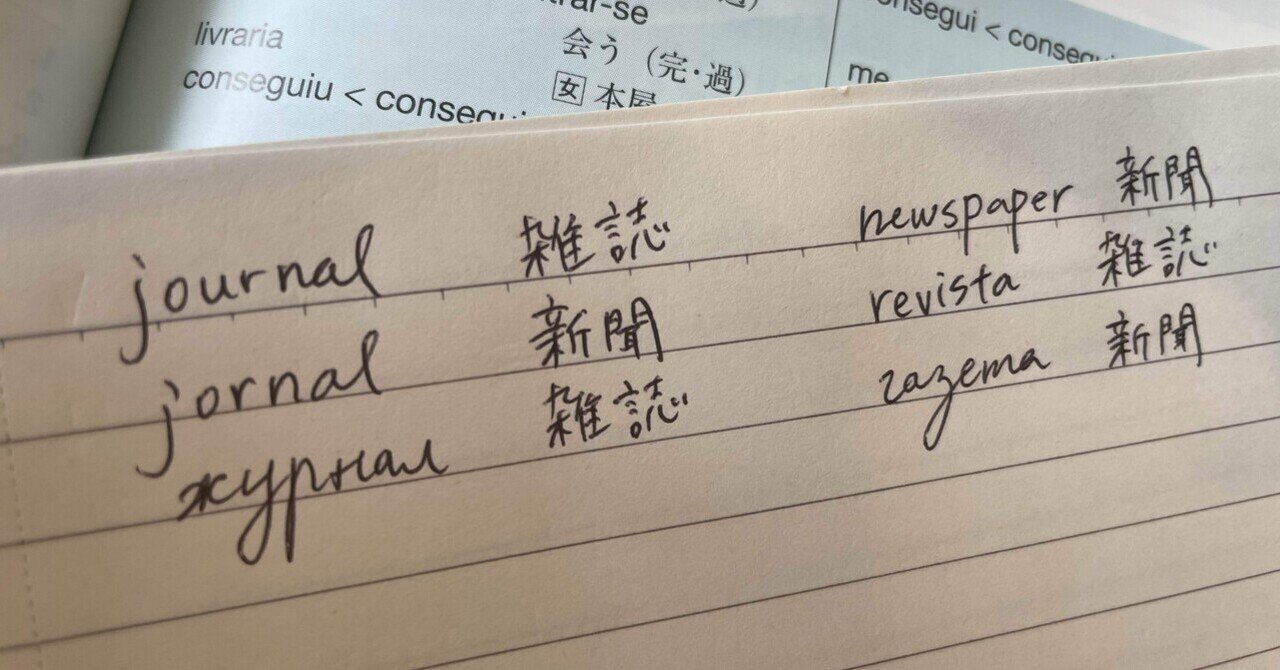 livraria
conseguiu < consegui
trar-se
会う（完・過）
女 本屋
onsegui < consegu
me
journal 雑誌 newspaper 新聞
jornal 新聞 revista 雑誌
журнал 雑誌 газета 新聞